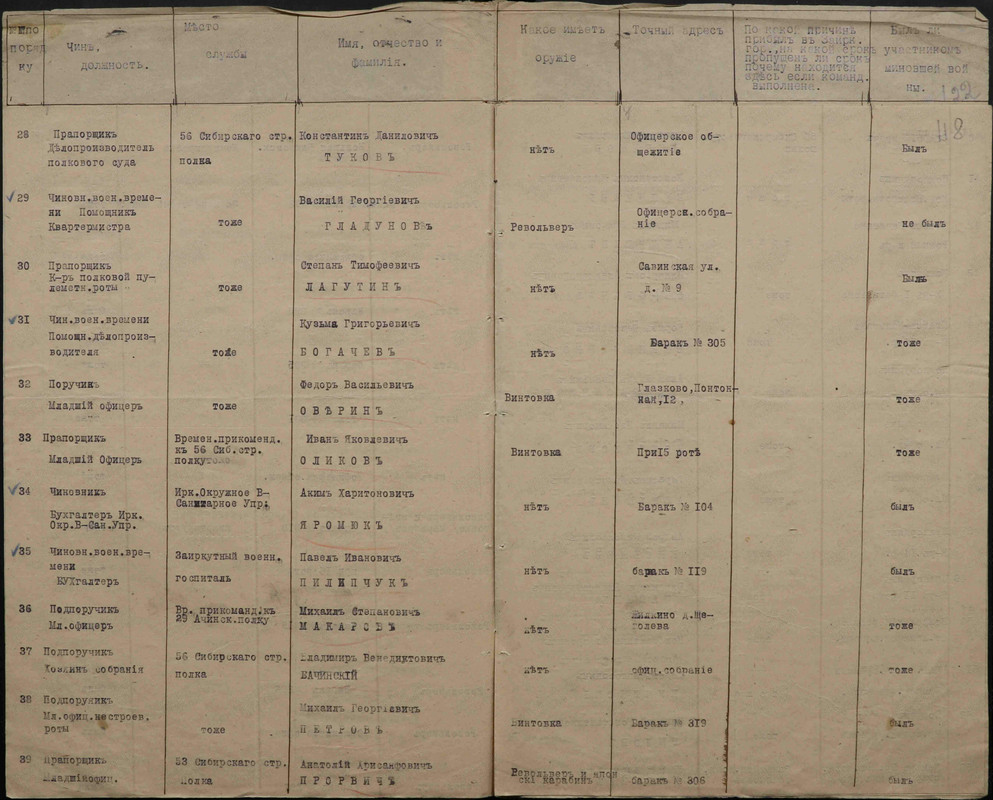 №№по поряд ку
Чинъ, должность.
Мѣсто службы
Имя, отчество и фамилія.
Какое имѣетъ оружіе
Точный адресъ
По какой причинѣ
прибылъ въ Заирк.
гор., на какой срокъ
пропущенъ ли срокъ
почему находится
здѣсь если команд.
выполнена.
Былъ ли
участникомъ
миновшей вой
ны.
192
118
28 Прапорщикъ 56 Сибирскаго стр. Константинъ Даниловичъ Офицерское об-
Дѣлопроизводитель нѣтъ щежитіе Былъ
полкового суда полка ТУКОВЪ
29 Чиновн.воен.време- Василій Георгіевичъ
ни Помощникъ тоже Офицерск.собра-
Квартермистра ГЛАДУНОВЪ Револьверъ ніе не былъ
30 Прапорщикъ Степанъ Тимофеевичъ Савинская ул.
К-ръ полковой пу- Былъ
леметн.роты тоже ЛАГУТИНЪ нѣтъ д. № 9
31 Чин.воен.времени Кузьма Григорьевичъ
Помощн.дѣлопроиз- Баракъ № 305 тоже
водителя тоже БОГАЧЕВЪ нѣтъ
32 Поручикъ Федоръ Васильевичъ Глазково,Понтон-
Младшій офицеръ тоже ОВѢРИНЪ Винтовка ная,12, тоже
33 Прапорщикъ Времен.прикоменд. Иванъ Яковлевичъ
къ 56 Сиб.стр. Винтовка При15 ротѣ тоже
Младшій Офицеръ полку ОЛИКОВЪ
34 Чиновникъ Ирк.Окружное В- Акимъ Харитоновичъ
Санитарное Упр. нѣтъ Баракъ № 104 былъ
Бухгалтеръ Ирк.
Окр.В-Сан.Упр. ЯРОМЮКЪ
35 Чиновн.воен.вре- Заиркутный военн. Павелъ Ивановичъ
мени нѣтъ баракъ № 119 былъ
БУХгалтеръ госпиталь ПИЛИПЧУКЪ
36 Подпоручикъ Вр. прикоманд.къ Михаилъ Степановичъ Жилкино д.Ще-
29 Ачинск.полку
Мл.офицеръ МАКАРОВЪ нѣтъ голева тоже
37 Подпоручикъ 56 Сибирскаго стр. Владимиръ Венедиктовичъ
Хозяинъ собранія полка БАЧИНСКІЙ нѣтъ офиц.собраніе тоже
38 Подпоручикъ Михаилъ Георгіевичъ
Мл.офиц.нестроев. Винтовка Баракъ № 319 былъ
роты тоже ПЕТРОВЪ
39 Прапорщикъ 53 Сибирскаго стр. Анатолій Револьверъ и япон
Младшійофиц. полка ПРОРВИЧЪ скі карабинъ баракъ № 306 былъ